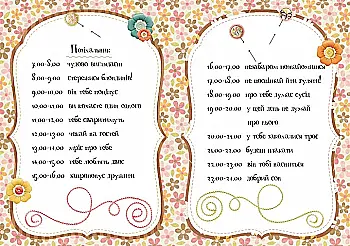 Поїхали:
7.00-8.00 чудово виглядаєш
8.00-9.00 стережись блондинів!
9.00-10.00 він тебе поцілує
10.00-11.00 ви кохаєте один одного
11.00-12.00 тебе сварититимуть
12.00-13.00 чекай на гостей
13.00-14.00 мріє про тебе
14.00-15.00 тебе люблять двоє
15.00-16.00 запропонує дружити
16.00-17.00 незабаром познайомишся
17.00-18.00 не шпигуй
18.00-19.00 про тебе думає сусід
19.00-20.00 у цей день не думай
про нього
20.00-21.00 у тебе закохалися троє
21.00-22.00 будеш плакати
22.00-23.00 він тобі насниться
23.00-24.00 добрий сон